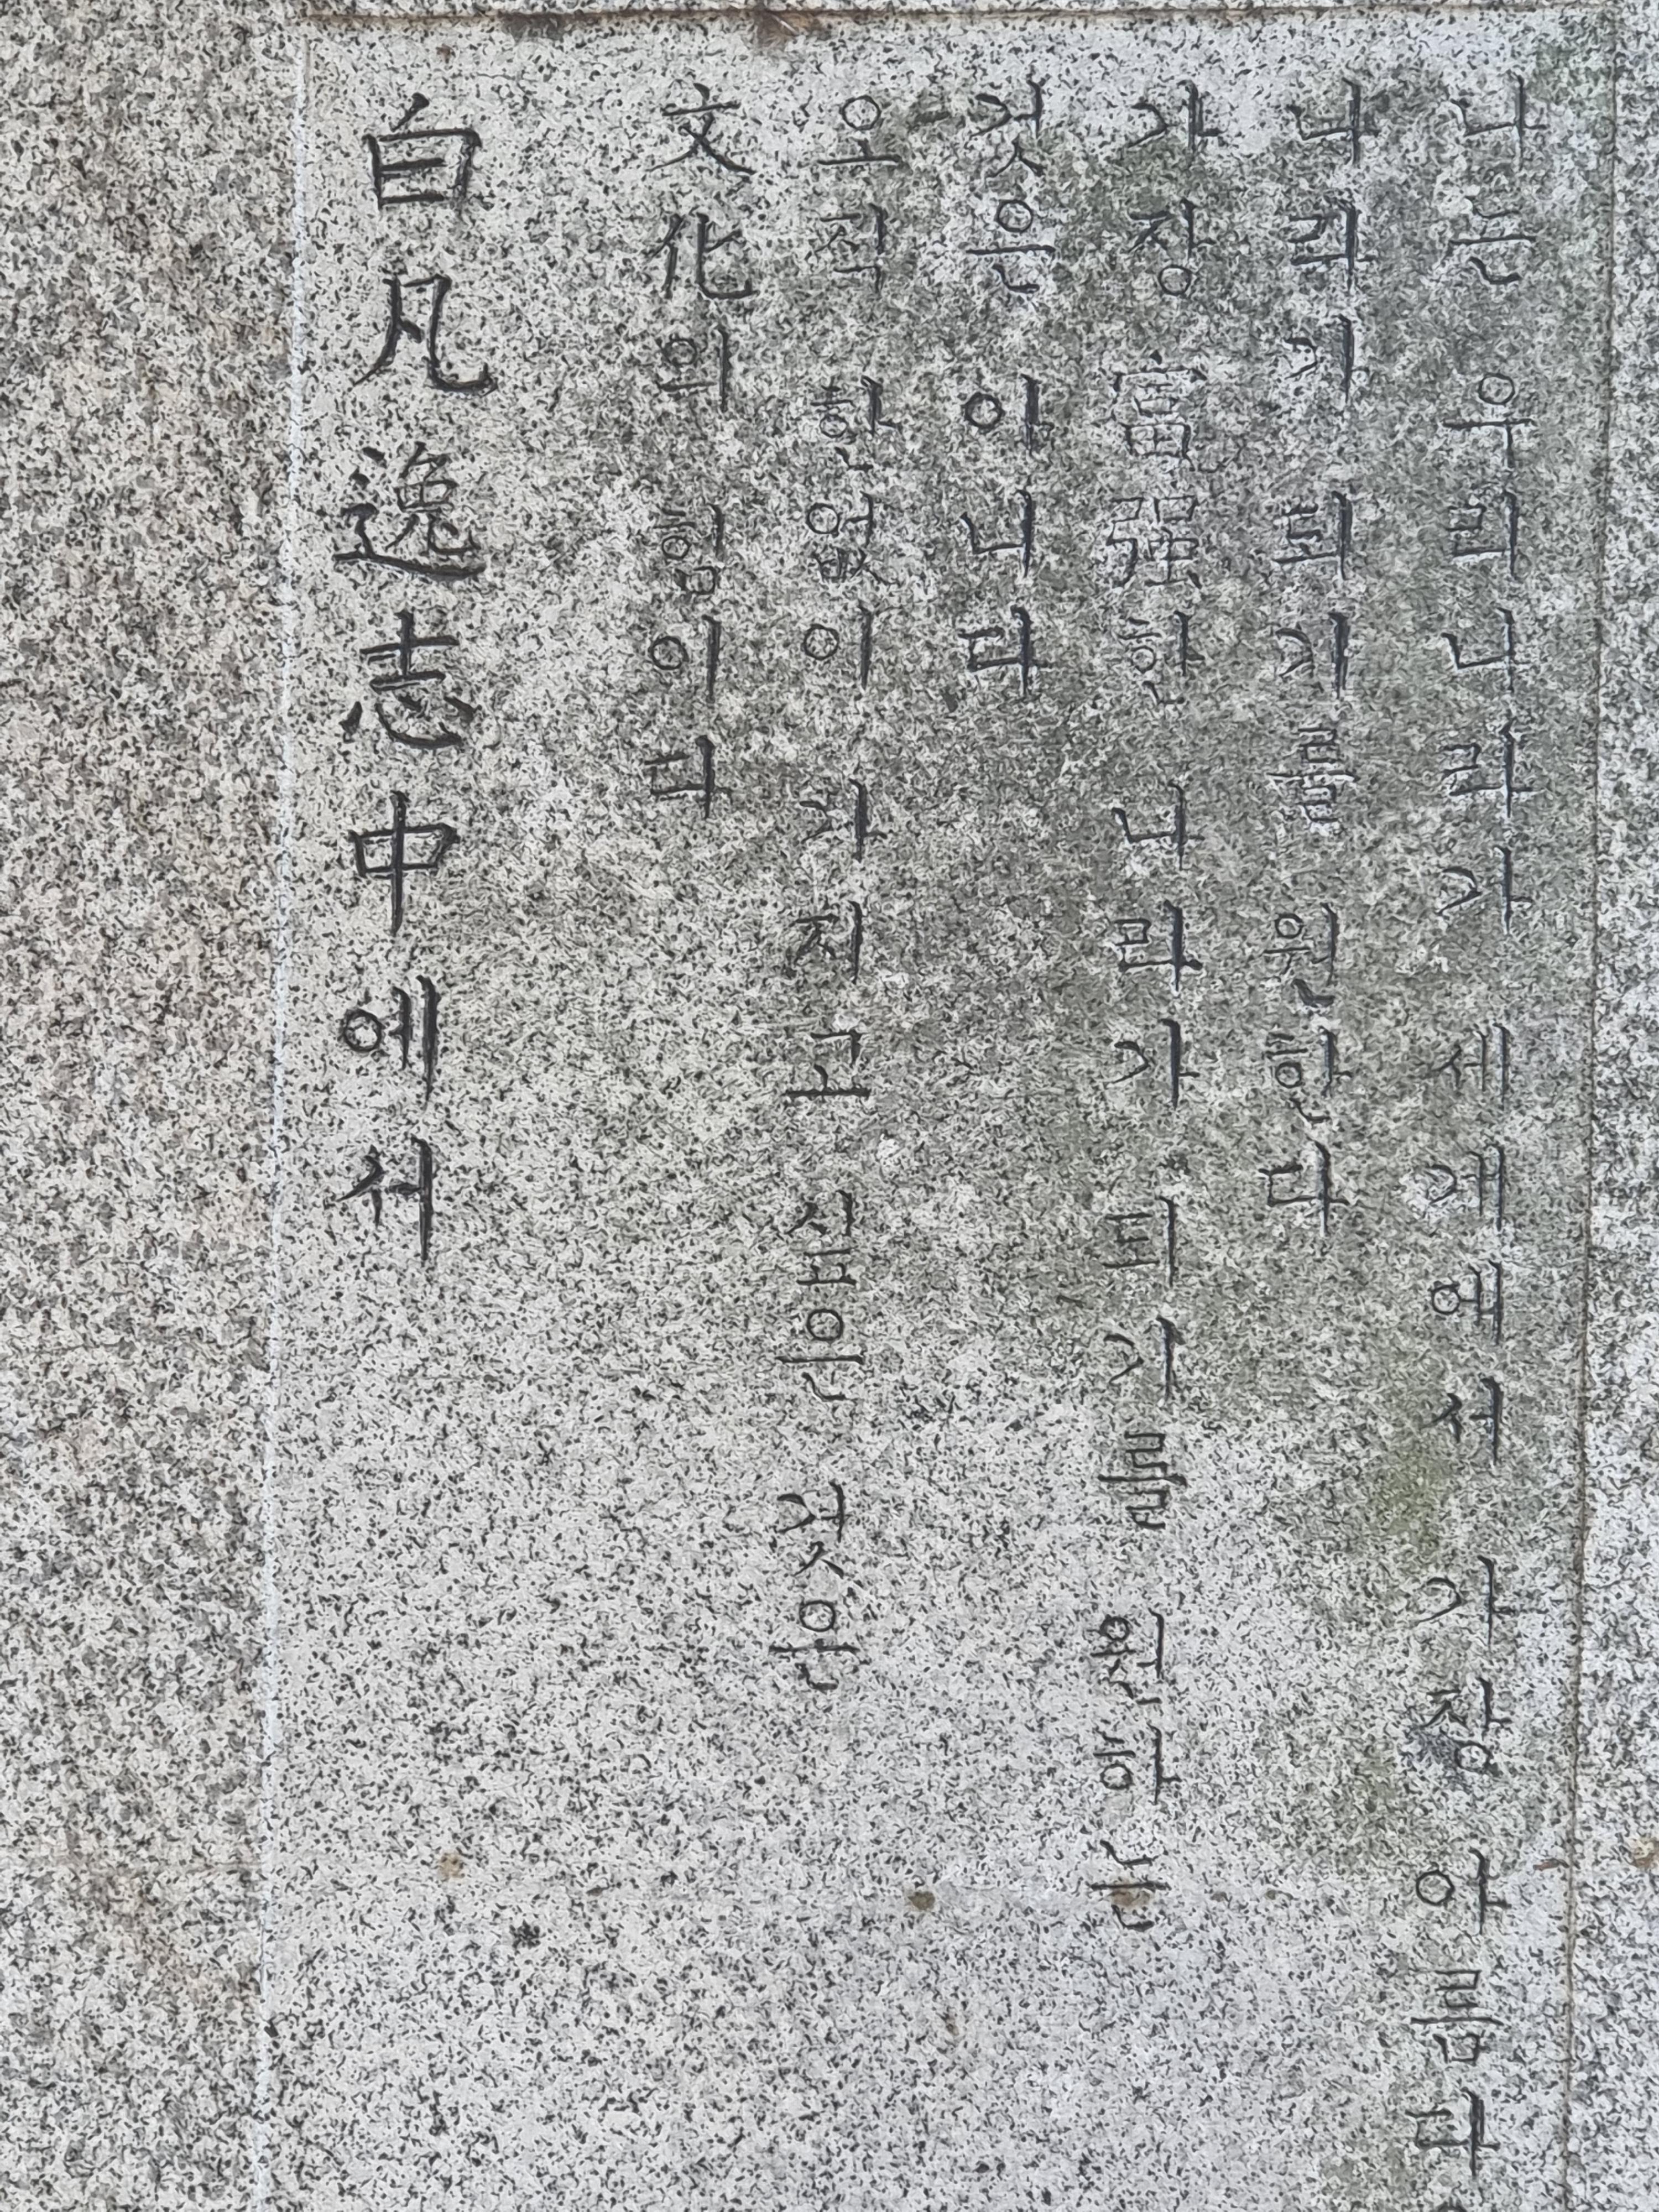 나는 우리나라가 세계에서 가장 아름다
나라가 되기를 원한다
가장 富强한 나라가 되기를 원하는
것은 아니다
오직 한없이 가지고 싶은 것은
文化의 힘이다
白凡逸志中에서